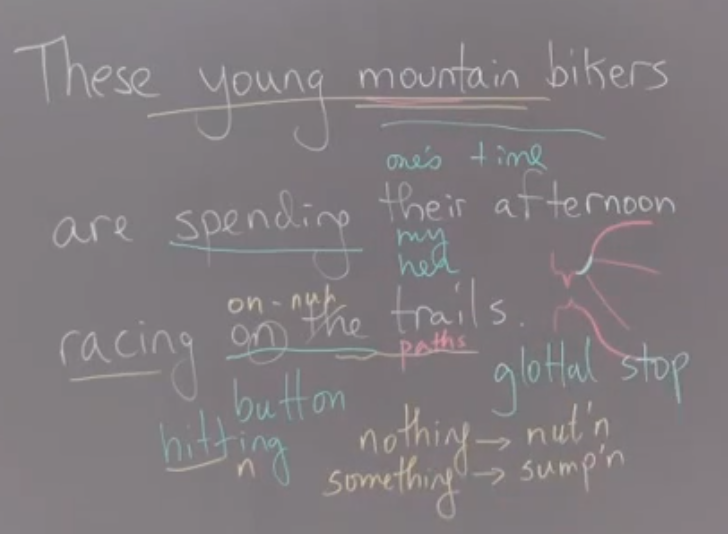 These young mountain bikers
one's time
are spending their afternoon
my
her
on-nuh
racing on the trails.
paths
glottal stop
button
hitting
n
nothing → nut'n
something → sump'n